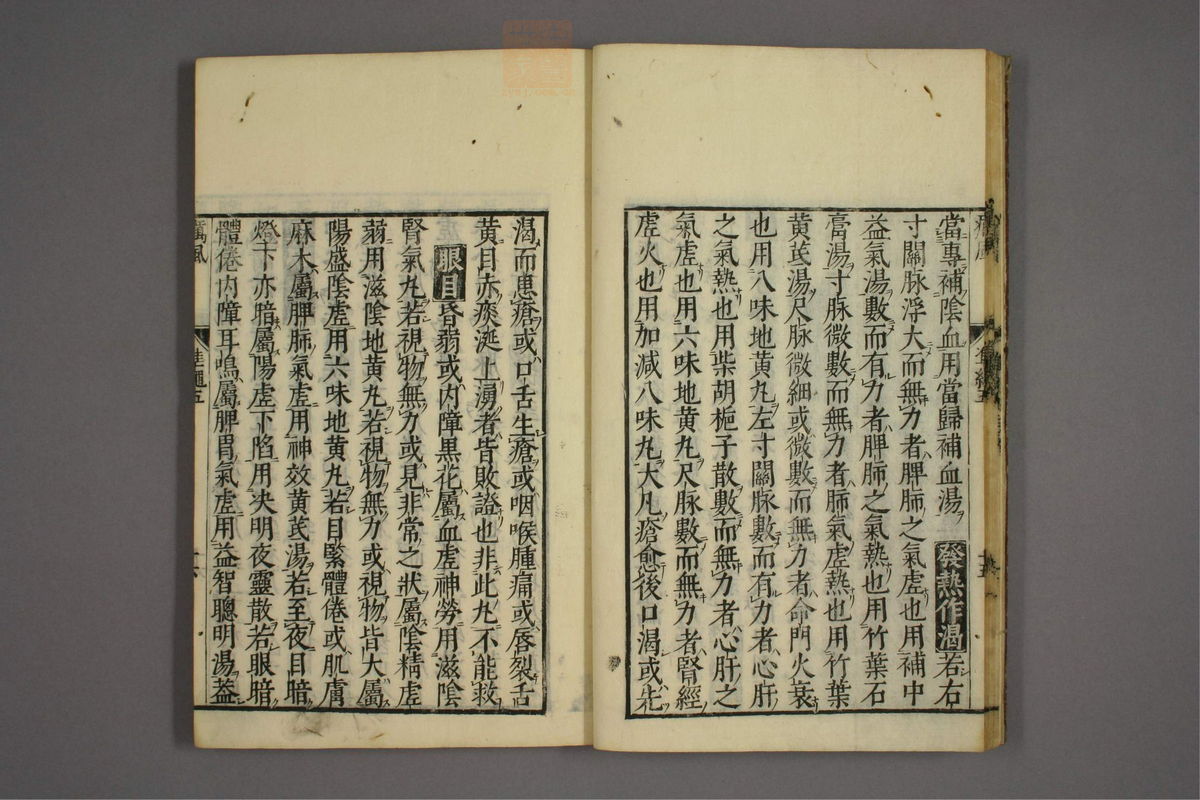 當專補陰血用當歸補血湯 發熱作渴 若右
寸關脉浮大而無力者脾肺之氣虛也用補中
益氣湯數而有力者脾肺之氣熱也用竹葉石
膏湯寸脉微數而無力者肺氣虛熱也用竹葉
黄芪湯尺脉微細或微數而無力者命門火衰
也用八味地黄丸左寸關脉數而有力者心肝
之氣熱也用柴胡梔子散數而無力者心肝之
氣虛也用六味地黄丸尺脉數而無力者腎經
虛火也用加減八味丸大凡瘡愈後口渴或先
渴而患瘡或口舌生瘡或咽喉腫痛或唇裂舌
黄目赤痰涎上湧者皆敗證也非此丸不能救
眼目 昏弱或内障黒花屬血虛神勞用滋陰
腎氣丸若視物無力或見非常之狀屬陰精虛
弱用滋陰地黄丸若視物無力或視物皆大屬
陽盛陰虛用六味地黄丸若目緊體倦或肌膚
麻木屬脾肺氣虛用神效黄芪湯若至夜目暗
燈下亦暗屬陽虛下陷用决明夜靈散若眼暗
體倦内障耳鳴屬脾胃氣虛用益智聰明湯益
癘風